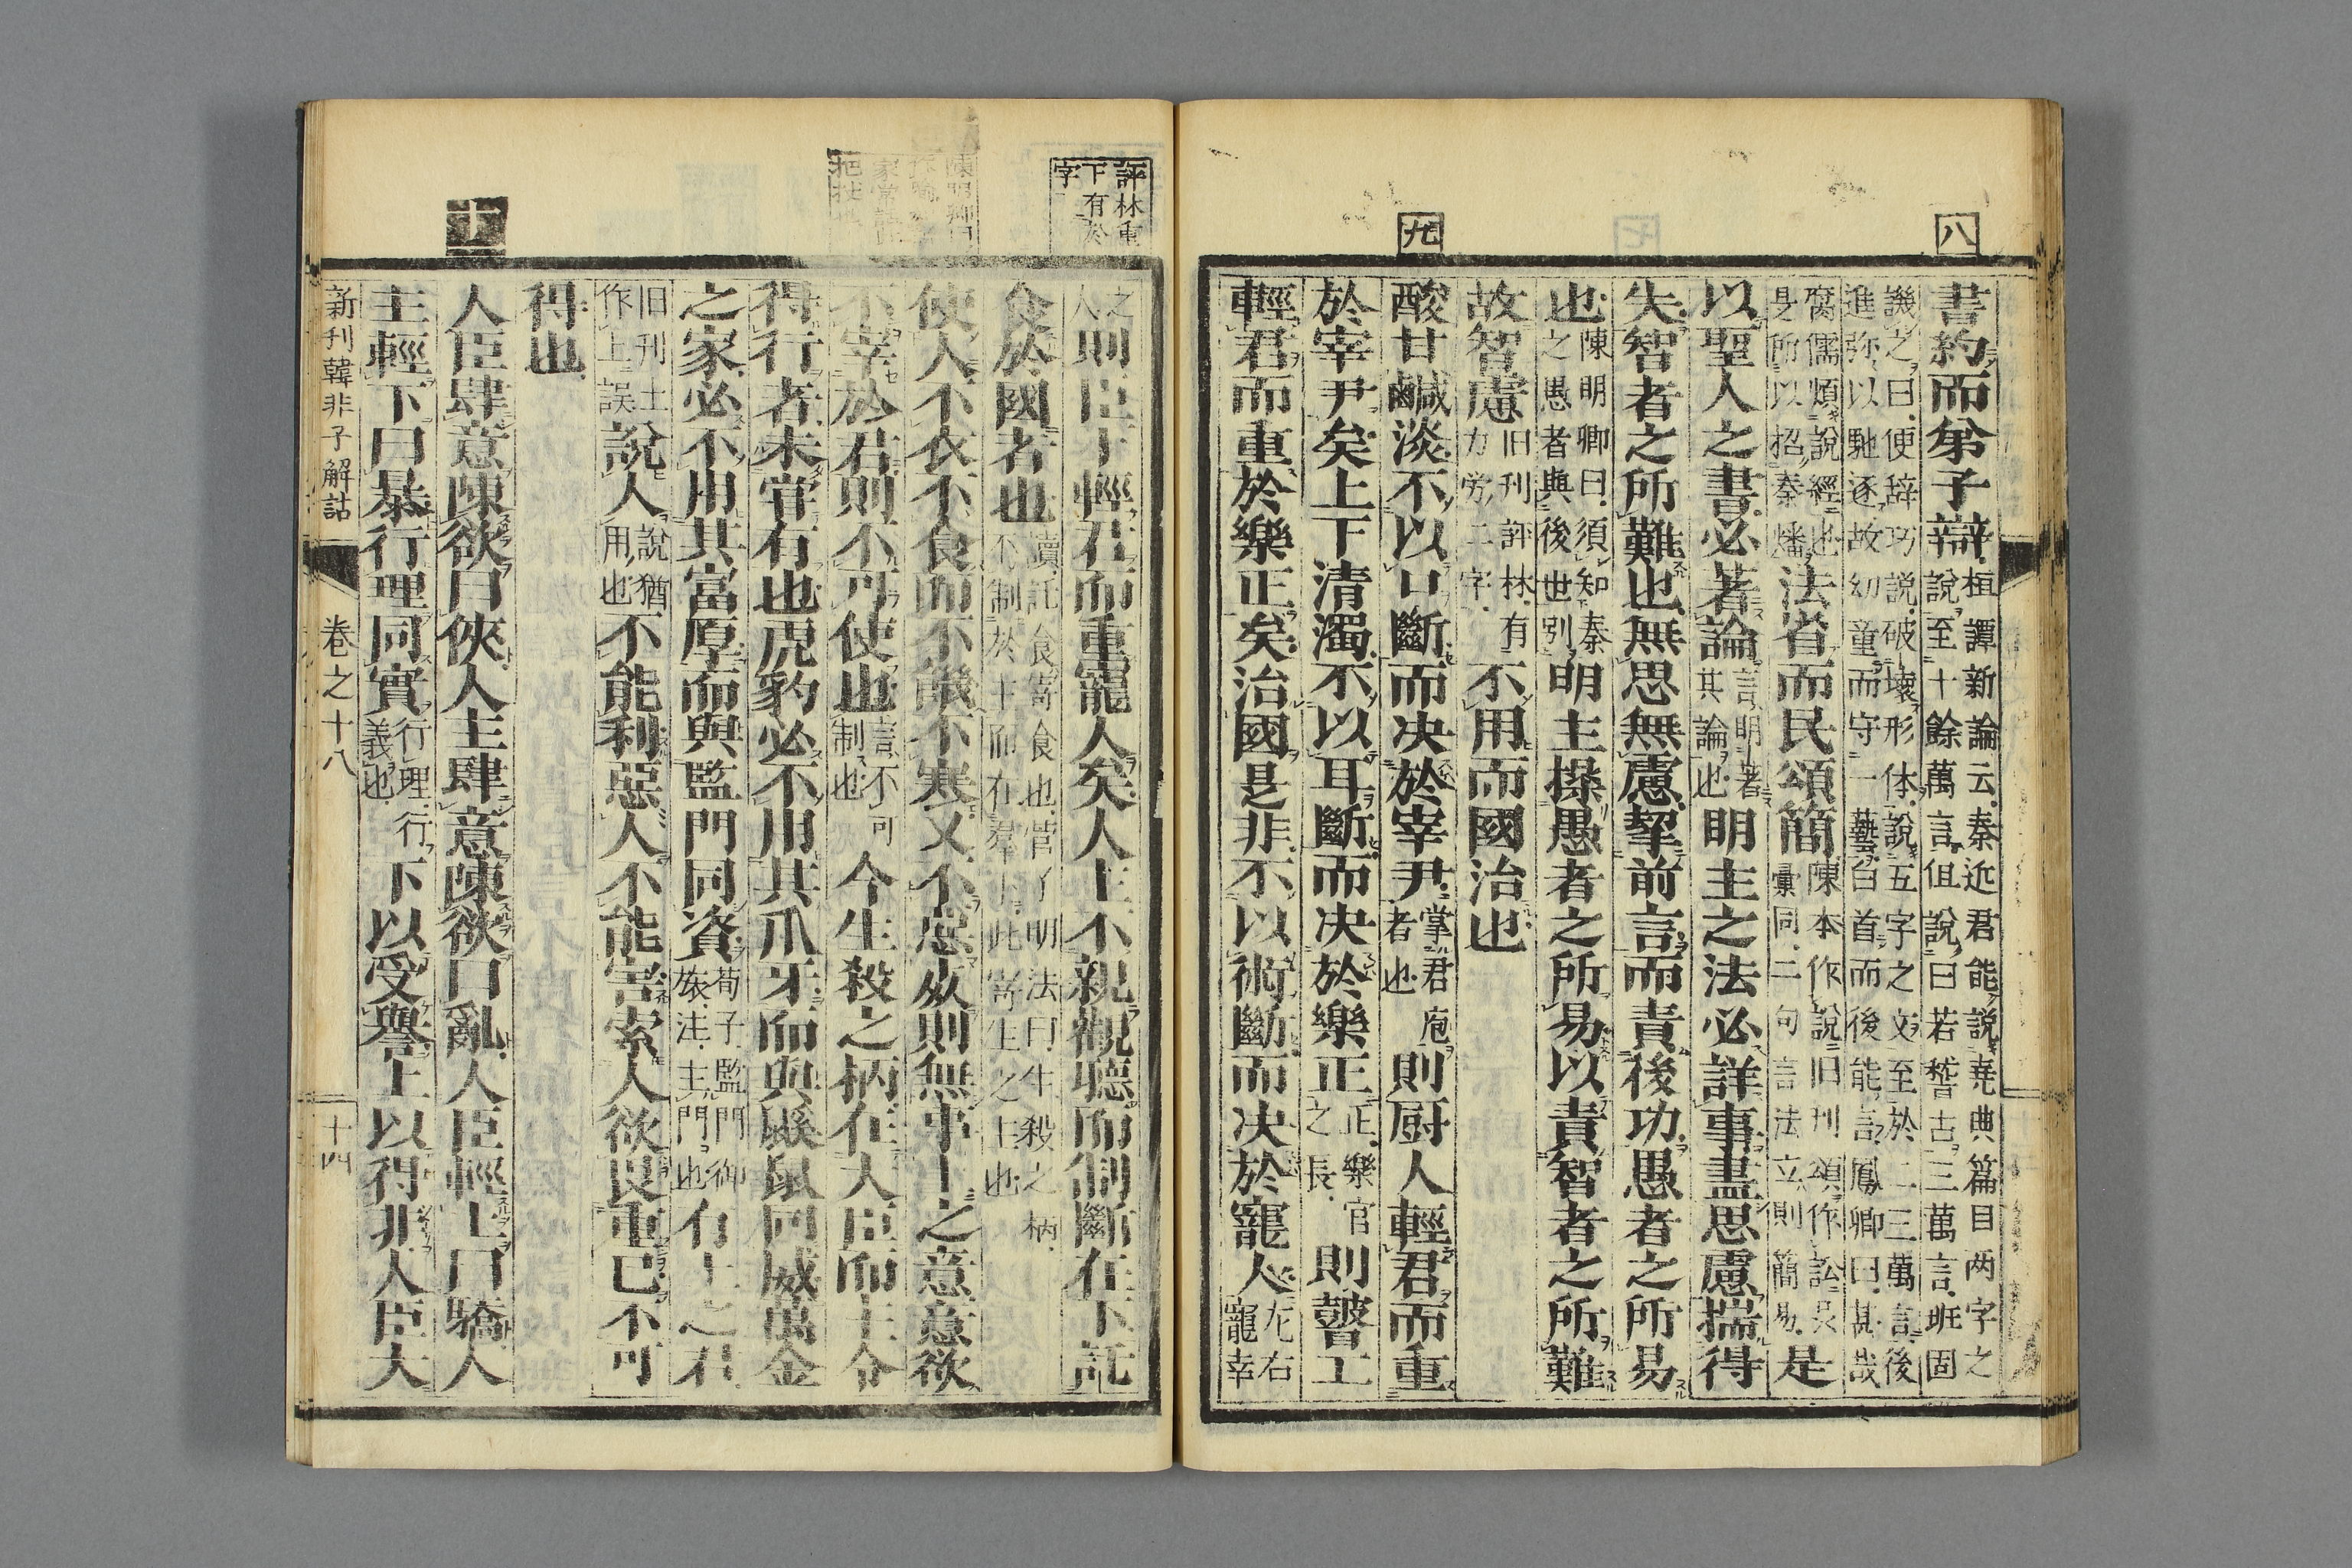 八
書約而弟子辯桓譚新論云秦近君能說堯典篇目两字之
說至十餘萬言但說曰若稽古三萬言班固
譏之曰便辞巧説破壊形体說五字之文至於二三萬言後
進弥以馳逐故幼童而守一藝白首而後能言鳳卿曰甚哉
腐儒煩說經也
是所以招秦燔法省而民頌簡陳本作說旧刊頌作訟
彙同二句言法立則簡易是
以聖人之書必著論言明著
其論也明主之法必詳事盡思慮揣得
失智者之所難也無思無慮挈前言而責後功愚者之所易
也陳明卿曰須知秦
之愚者與後世別明主操愚者之所易以責智者之所難
故智慮旧刊評林有
力労二字不用而國治也
九
酸甘鹹淡不以口斷而决於宰尹掌君庖
者也則厨人輕君而重
於宰尹矣上下清濁不以耳斷而决於樂正正樂官
之長則瞽工
輕君而重於樂正矣治國是非不以術斷而决於寵人左右
寵幸
評林重
下有於
字
之
人則臣下輕君而重寵人矣人主不親觀聽而制斷在下託
食於國者也讀託食寄食也管子明法曰生殺之柄
不制於主而在羣下此寄生之主也
使人不衣不食而不飢不寒又不惡死則無事上之意意欲
不宰於君則不可使也言不可
制也今生殺之柄在大臣而主令
得行者未甞有也虎豹必不用其爪牙而與鼷鼠同威萬金
之家必不用其富厚而與監門同資荀子監門御
旅注主門也有土之君
旧刊土
作上誤說人說猶
用也不能利惡人不能害索人欲畏重己不可
得也
十
人臣肆意陳欲曰俠人主肆意陳欲曰亂人臣輕上曰驕人
主輕下曰暴行理同實行理行
義也下以受譽上以得非人臣大
新刊韓非子解詁
卷之十八
十四